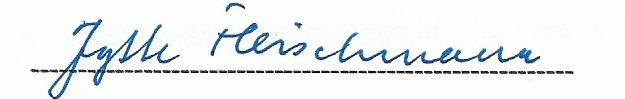 Jytte Fleischmann